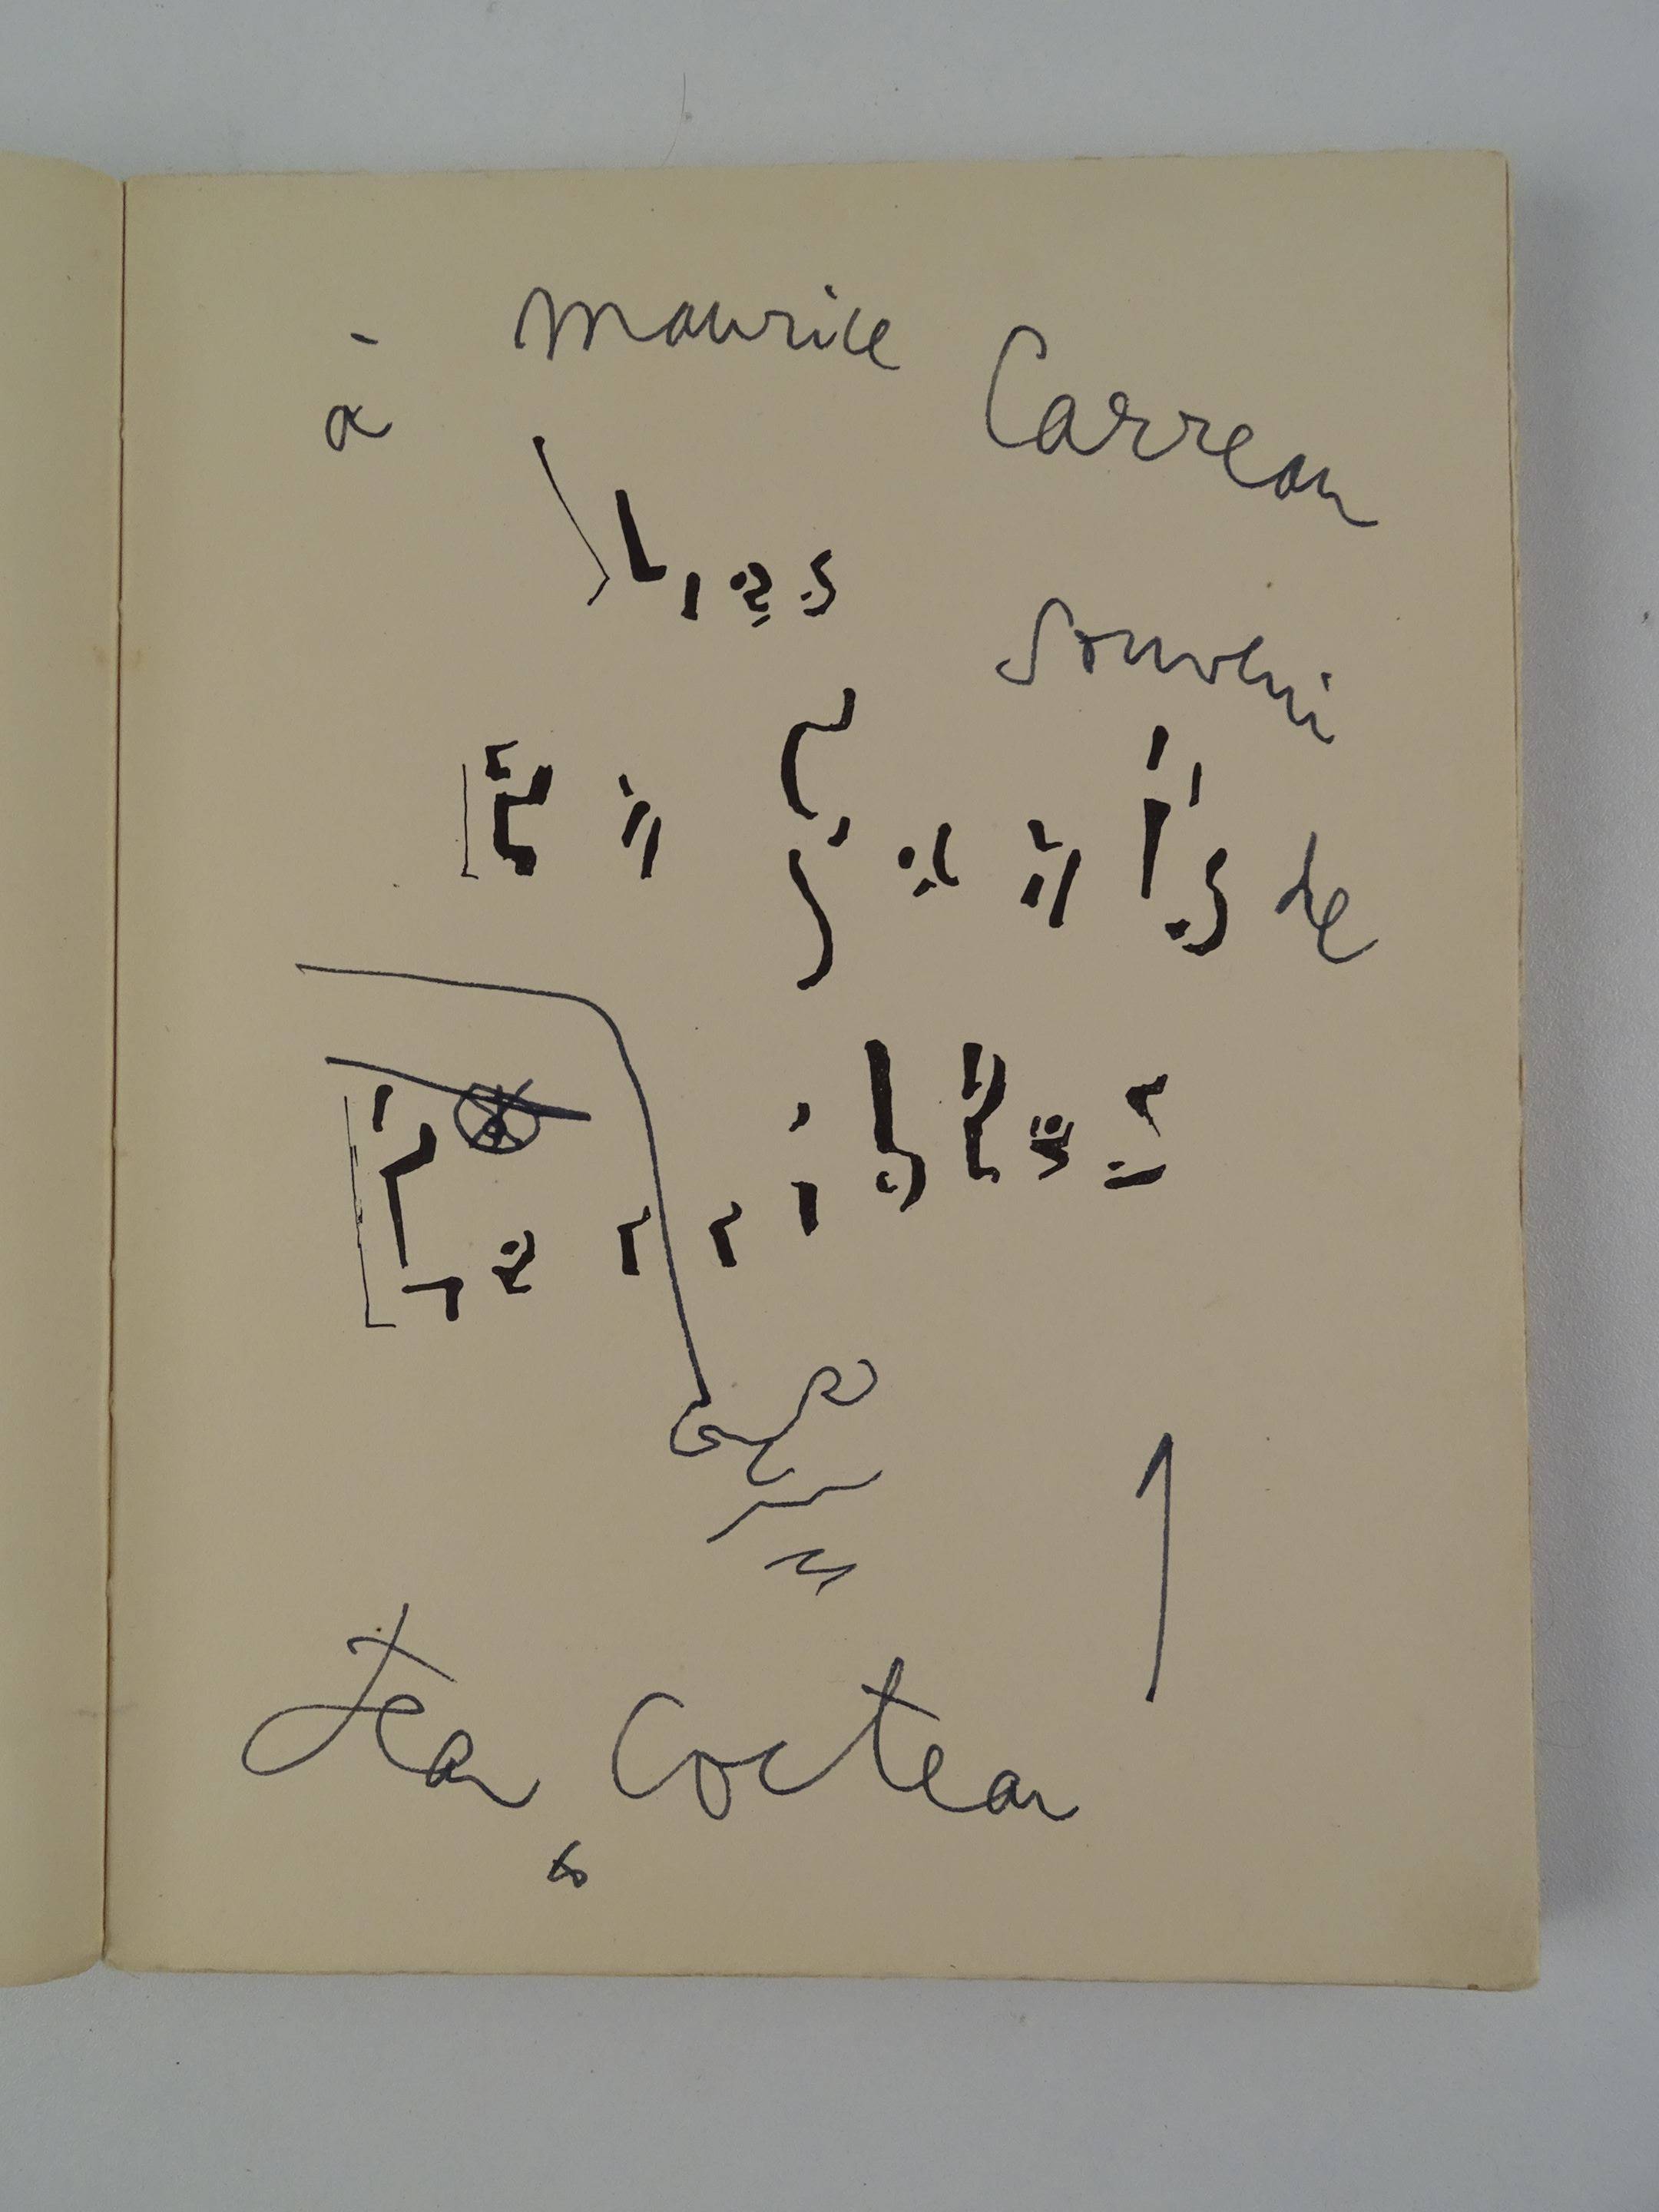 à Maurice Carreau
Les
souvenir
Enfants
de
Terribles
Jean Cocteau